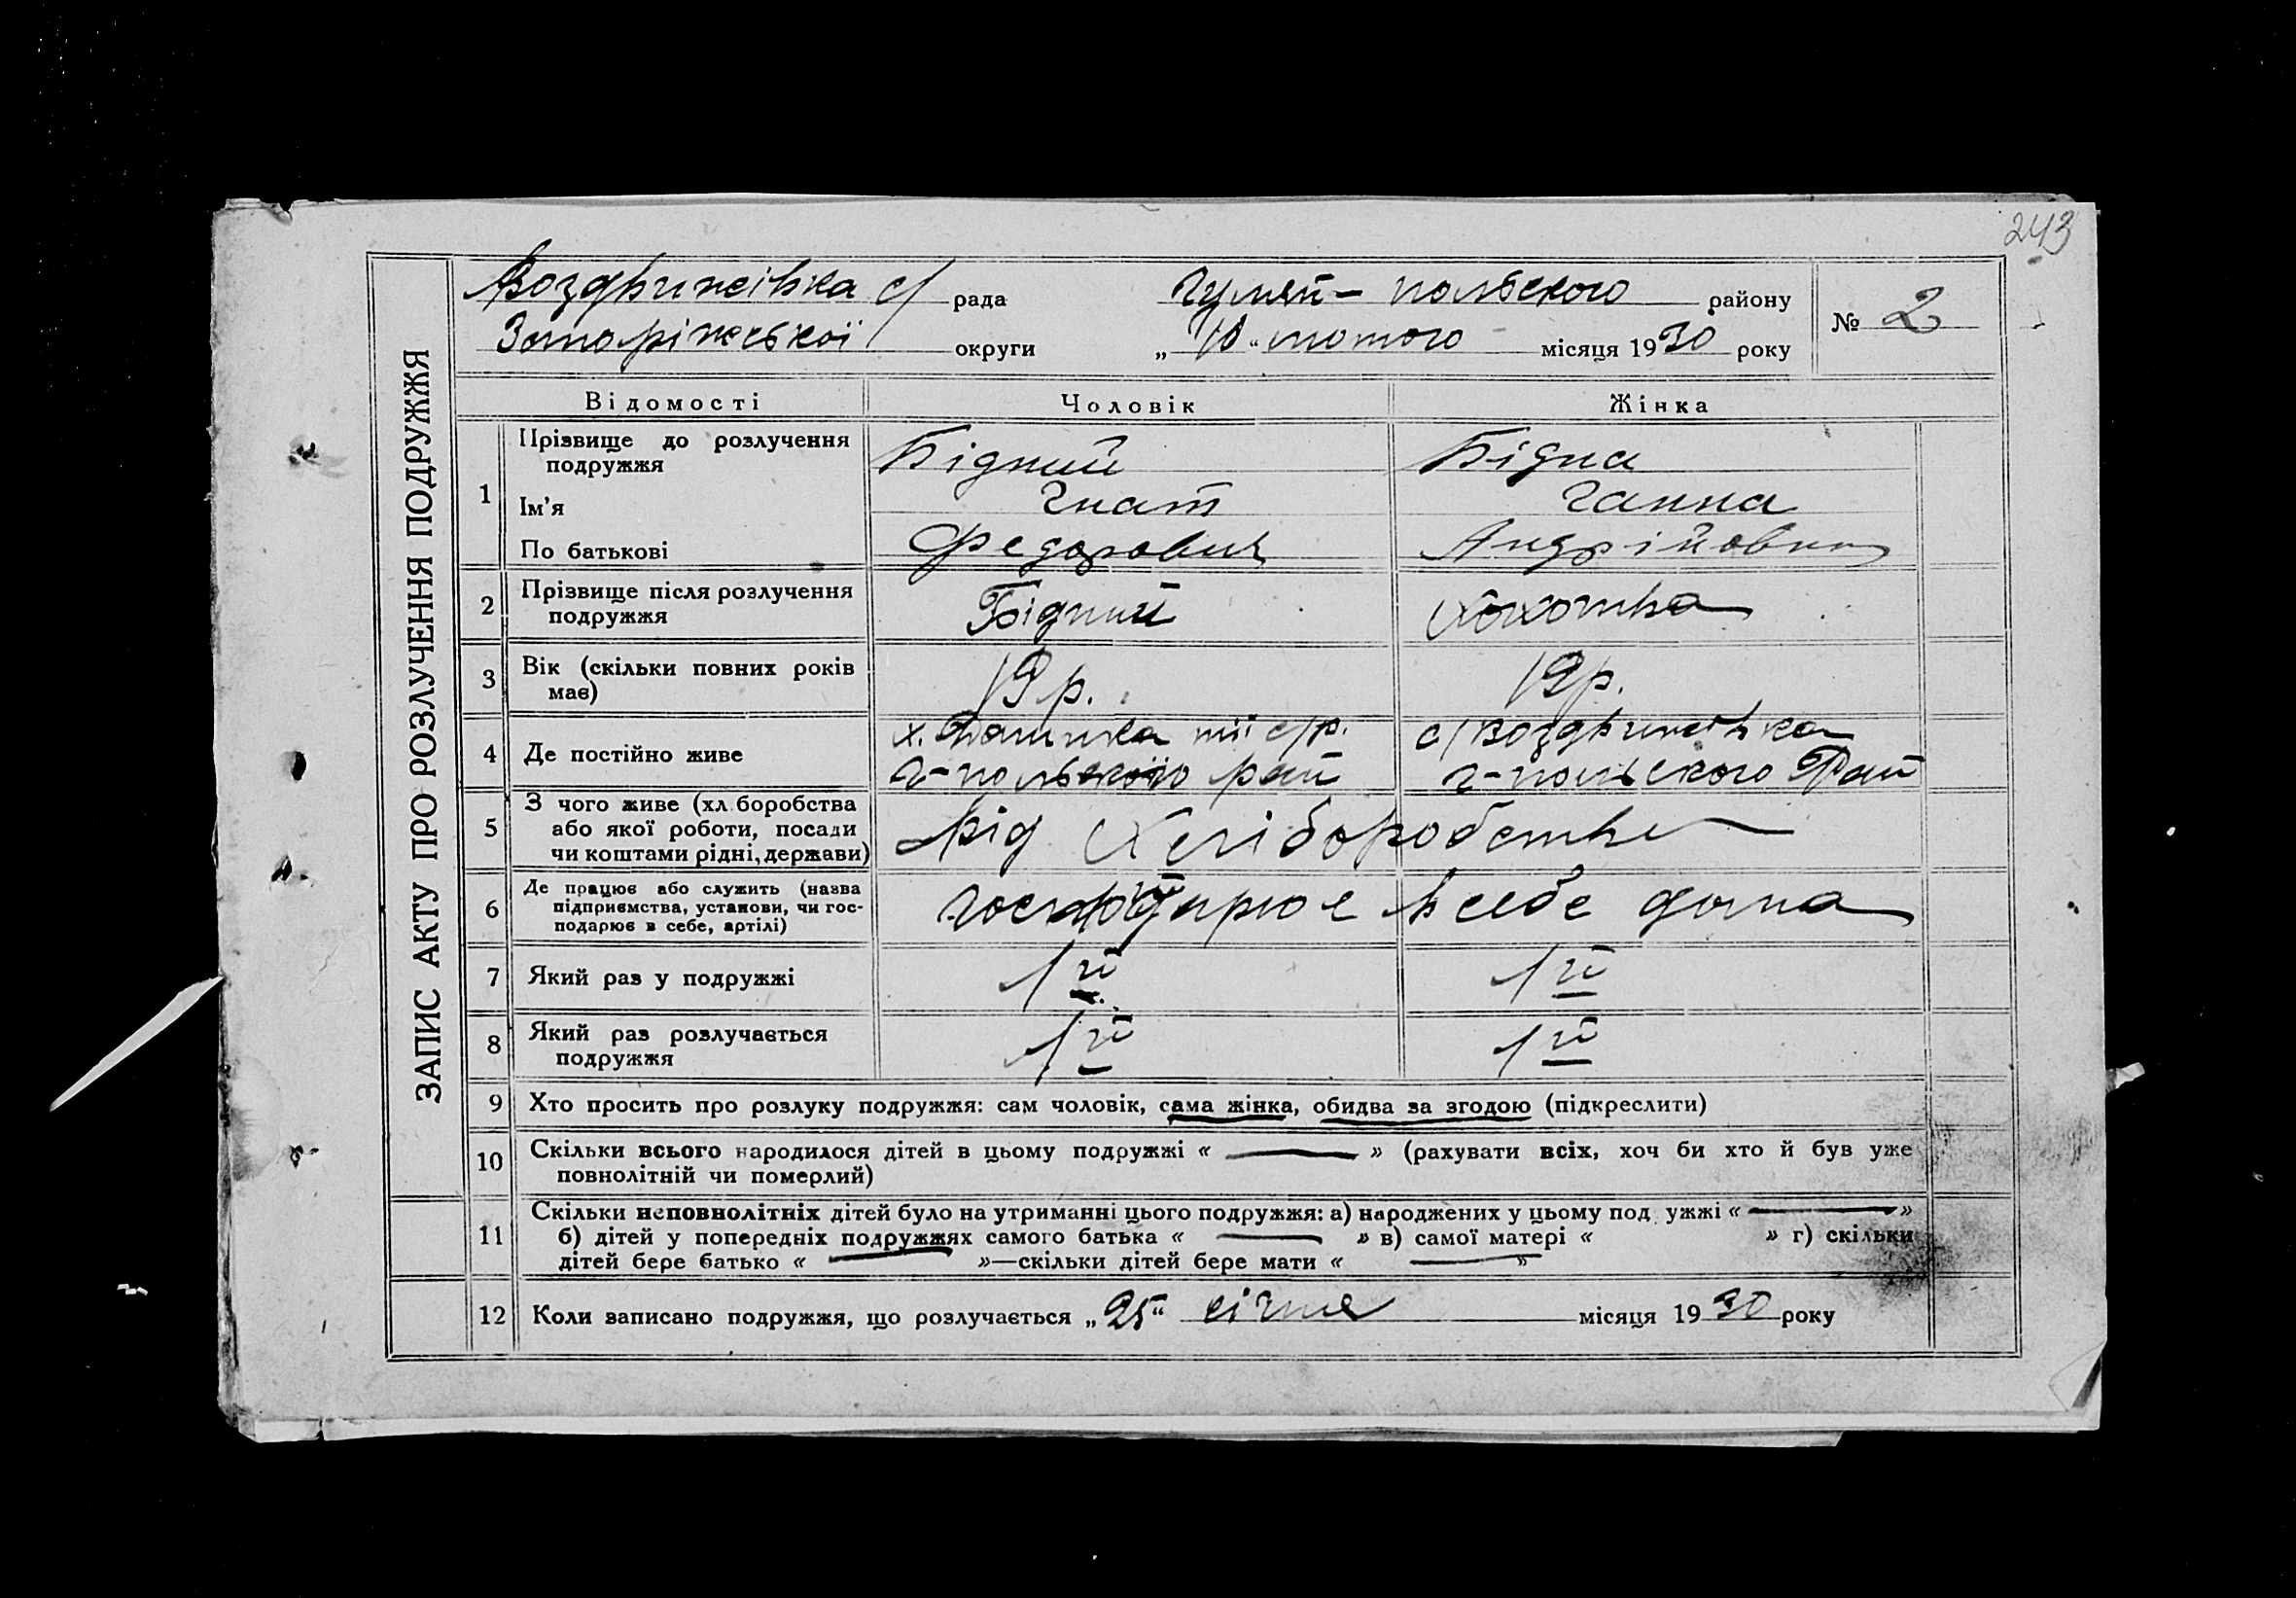 243
ЗАПИС АКТУ ПРО РОЗЛУЧЕННЯ ПОДРУЖЖЯ
Воздвижівка с/ рада Гуляй-польского району № 2
Запоріжської округи „10" лютого місяця 1930 року
Відомості Чоловік Жінка
1 Прізвище до розлучення Бідний Бідна
подружжя
Ім'я Гнат Ганна
По батькові Федорович Андрійовна
2 Прізвище після розлучення Бідний
подружжя
3 Вік (скільки повних років 19 р. 19 р.
має)
4 Де постійно живе х. с/р. с/Воздвижівка
Г-польского рай Г-польского Рай
5 З чого живе (хл.боробства від Хліборобства
або якої роботи, посади
чи коштами рідні, держави)
6 Де працює або служить (назва в себе дома
підприємства, установи, чи гос-
подарює в себе, артілі)
7 Який раз у подружжі 1й 1й
8 Який раз розлучається 1й 1й
подружжя
9 Хто просить про розлуку подружжя: сам чоловік, сама жінка, обидва за згодою (підкреслити)
10 Скільки всього народилося дітей в цьому подружжі « — » (рахувати всіх, хоч би хто й був уже
повнолітній чи померлий)
11 Скільки неповнолітніх дітей було на утриманні цього подружжя: а) народжених у цьому под ужжі « — »
б) дітей у попередніх подружжях самого батька « — » в) самої матері « » г) скільки
дітей бере батько « — »—скільки дітей бере мати « — »
12 Коли записано подружжя, що розлучається „25" січня місяця 1930 року